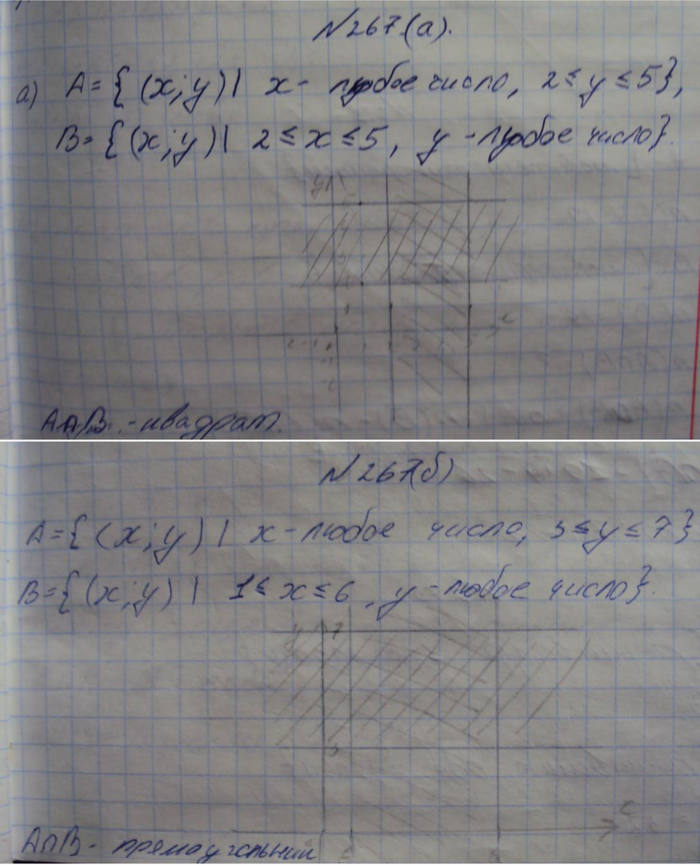 N267(а).
а) A={(x;y)| x- любое число, 2≤y≤5},
B={(x;y)| 2≤x≤5, y-любое число}.
y
A∩B.-квадрат.
N267(б)
A={(x;y)| x-любое число, 3≤y≤7}
B={(x;y)| 1≤x≤6, y-любое число}.
y 7
A∩B- прямоугольник